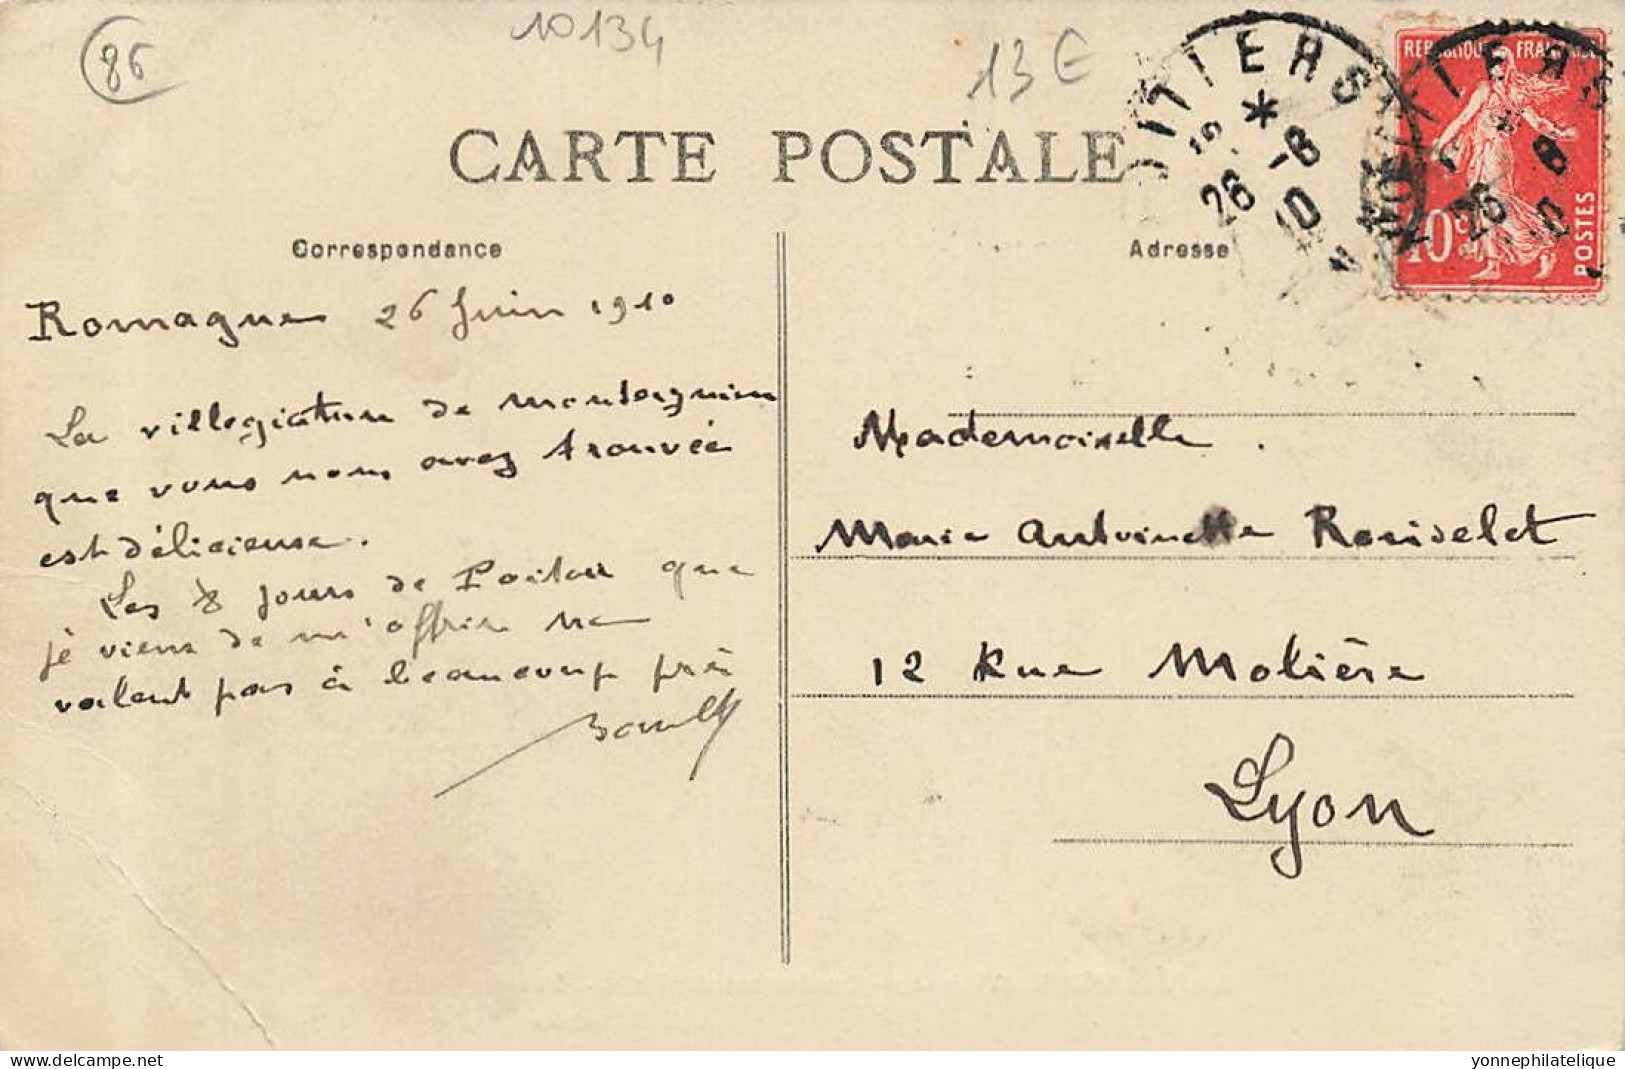 86
10134
13 €
CARTE POSTALE
Correspondance
Adresse
REPUBLIQUE FRANÇAISE
10c
POSTES
POITIERS
26 -6
10
VIENNE
Romagne 26 Juin 1910
La villegiature de
que vous nous avez trouvée
est délicieuse.
Les 8 jours de Poitou que
je viens de m'offrir ne
valent pas à beaucoup près
Mademoiselle
Marie Antoinette
12 Rue Molière
Lyon
delcampe.net
yonnephilatelique